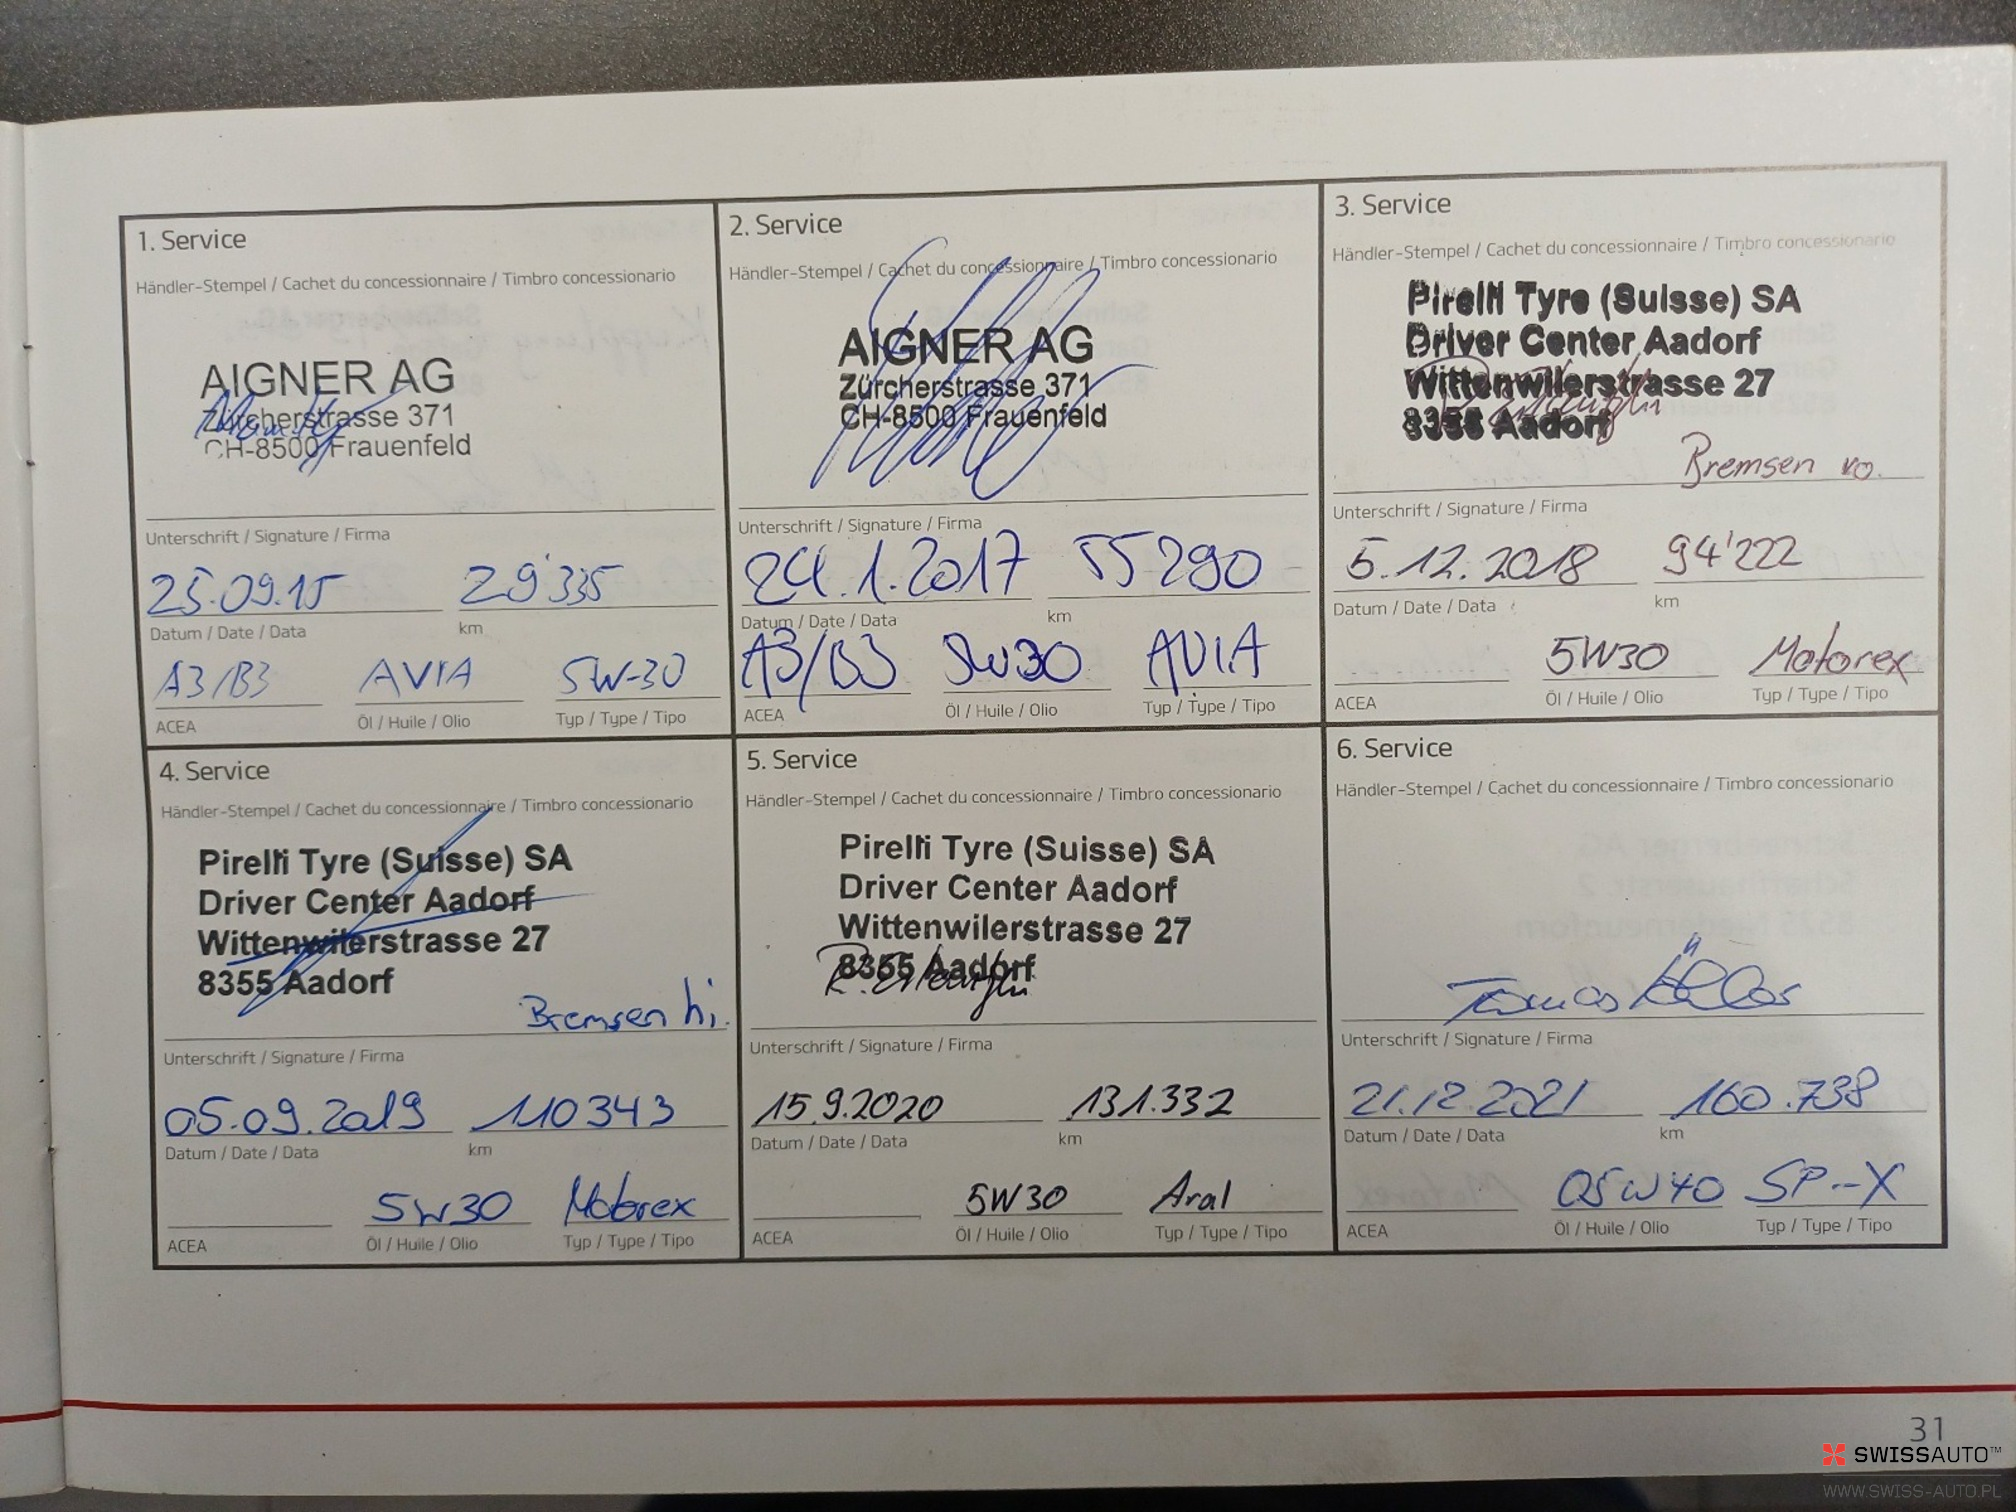 1. Service
Händler-Stempel / Cachet du concessionnaire / Timbro concessionario
AIGNER AG
Zürcherstrasse 371
CH-8500 Frauenfeld
Unterschrift / Signature / Firma
25.09.15 29'335
Datum / Date / Data km
A3/B3 AVIA 5W-30
ACEA Öl / Huile / Olio Typ / Type / Tipo
2. Service
Händler-Stempel / Cachet du concessionnaire / Timbro concessionario
AIGNER AG
Zürcherstrasse 371
CH-8500 Frauenfeld
Unterschrift / Signature / Firma
24.1.2017 55290
Datum / Date / Data km
A3/B3 5W30 AVIA
ACEA Öl / Huile / Olio Typ / Type / Tipo
3. Service
Händler-Stempel / Cachet du concessionnaire / Timbro concessionario
Pirelli Tyre (Suisse) SA
Driver Center Aadorf
Wittenwilerstrasse 27
8355 Aadorf
Bremsen vo.
Unterschrift / Signature / Firma
5.12.2018 94'222
Datum / Date / Data km
5W30 Motorex
ACEA Öl / Huile / Olio Typ / Type / Tipo
4. Service
Händler-Stempel / Cachet du concessionnaire / Timbro concessionario
Pirelli Tyre (Suisse) SA
Driver Center Aadorf
Wittenwilerstrasse 27
8355 Aadorf
Bremsen hi.
Unterschrift / Signature / Firma
05.09.2019 110343
Datum / Date / Data km
5W30 Motorex
ACEA Öl / Huile / Olio Typ / Type / Tipo
5. Service
Händler-Stempel / Cachet du concessionnaire / Timbro concessionario
Pirelli Tyre (Suisse) SA
Driver Center Aadorf
Wittenwilerstrasse 27
8355 Aadorf
Unterschrift / Signature / Firma
15.9.2020 131.332
Datum / Date / Data km
5W30 Aral
ACEA Öl / Huile / Olio Typ / Type / Tipo
6. Service
Händler-Stempel / Cachet du concessionnaire / Timbro concessionario
Unterschrift / Signature / Firma
21.12.2021 160.738
Datum / Date / Data km
05W40 SP-X
ACEA Öl / Huile / Olio Typ / Type / Tipo
31
SWISSAUTO™
WWW.SWISS-AUTO.PL